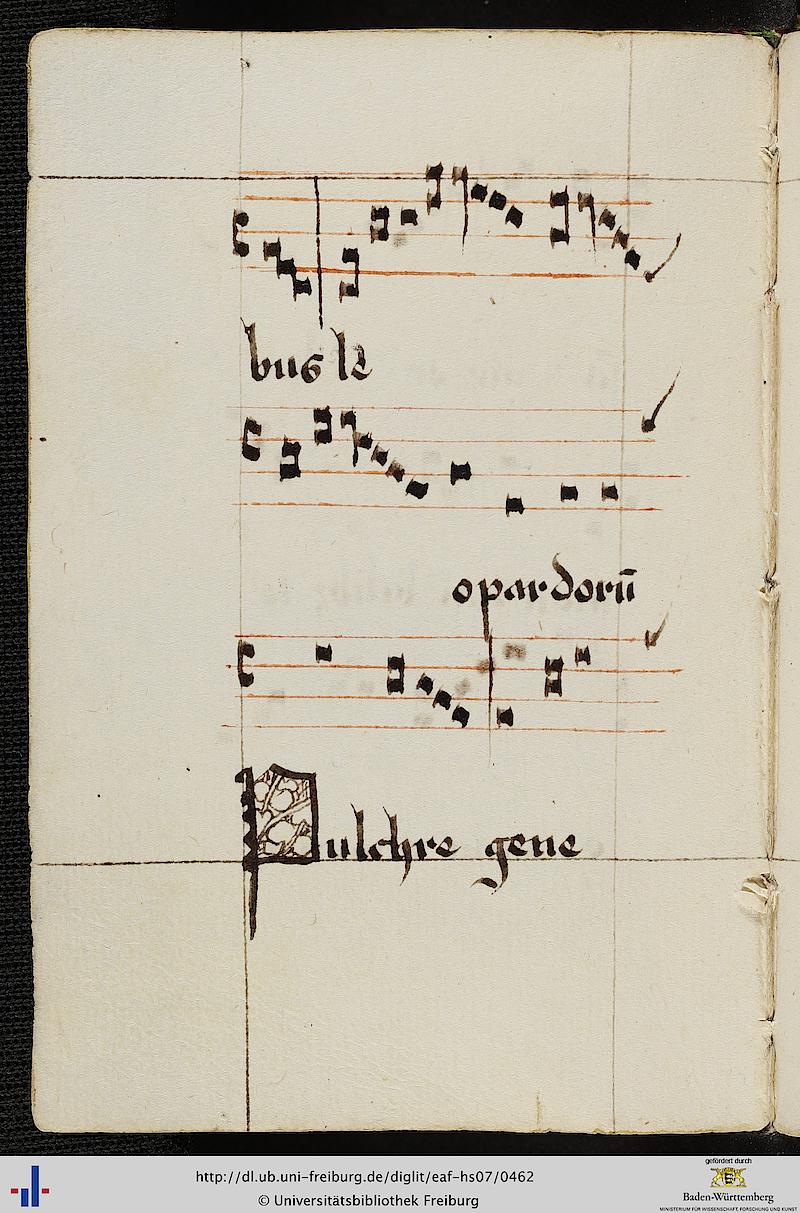 bus le
opardorū
Pulchre gene
http://dl.ub.uni-freiburg.de/diglit/eaf-hs07/0462
© Universitätsbibliothek Freiburg
gefördert durch
Baden-Württemberg
MINISTERIUM FÜR WISSENSCHAFT, FORSCHUNG UND KUNST